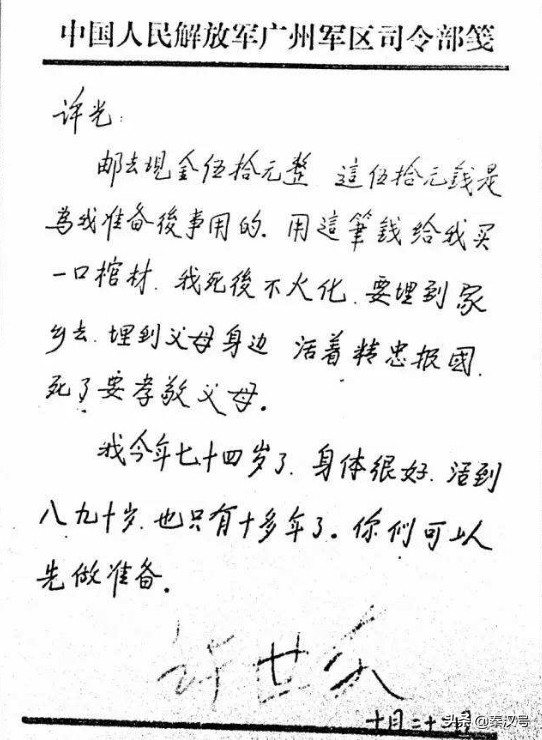 中国人民解放军广州军区司令部笺
许光:
邮去现金伍拾元整 這伍拾元錢是
為我准备後事用的.用這筆錢给我买
一口棺材.我死後不火化.要埋到家
乡去.埋到父母身边 活着精忠报國.
死了要孝敬父母。
我今年七十四岁了.身体很好.活到
八九十岁.也只有十多年了。你们可以
先做准备。
许世友
十月二十二号
头条@秦汉号